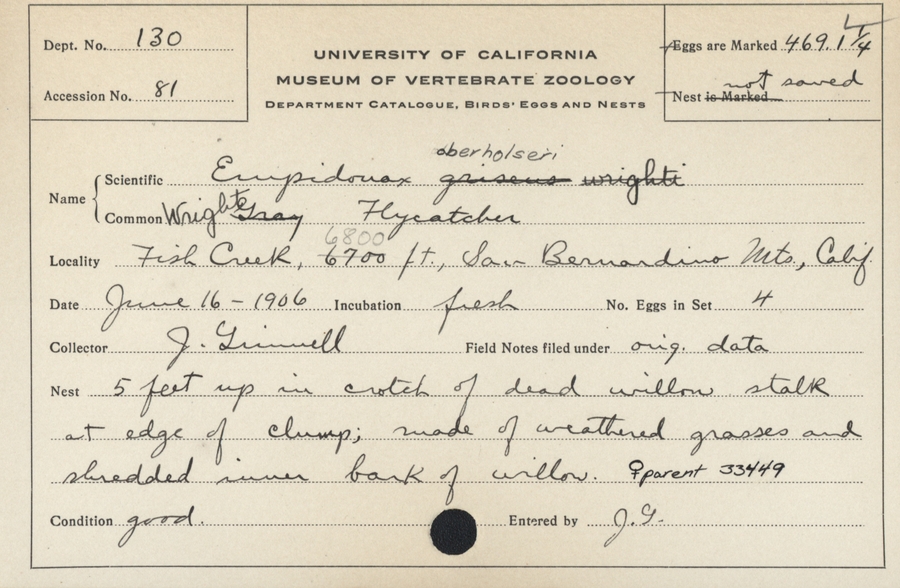 Dept. No. 130
Accession No. 81
UNIVERSITY OF CALIFORNIA
MUSEUM OF VERTEBRATE ZOOLOGY
DEPARTMENT CATALOGUE, BIRDS' EGGS AND NESTS
Eggs are Marked 469.1 1/4
not saved
Nest is Marked
oberholseri
Name Scientific Empidonax griseus wrighti
Common Wright's Gray Flycatcher
6800
Locality Fish Creek, 6700 ft., San Bernardino Mts., Calif.
Date June 16-1906 Incubation fresh No. Eggs in Set 4
Collector J. Grinnell Field Notes filed under orig. data
Nest 5 feet up in crotch of dead willow stalk
at edge of clump; made of weathered grasses and
shredded inner bark of willow. ♀parent 33449
Condition good. Entered by J.G.